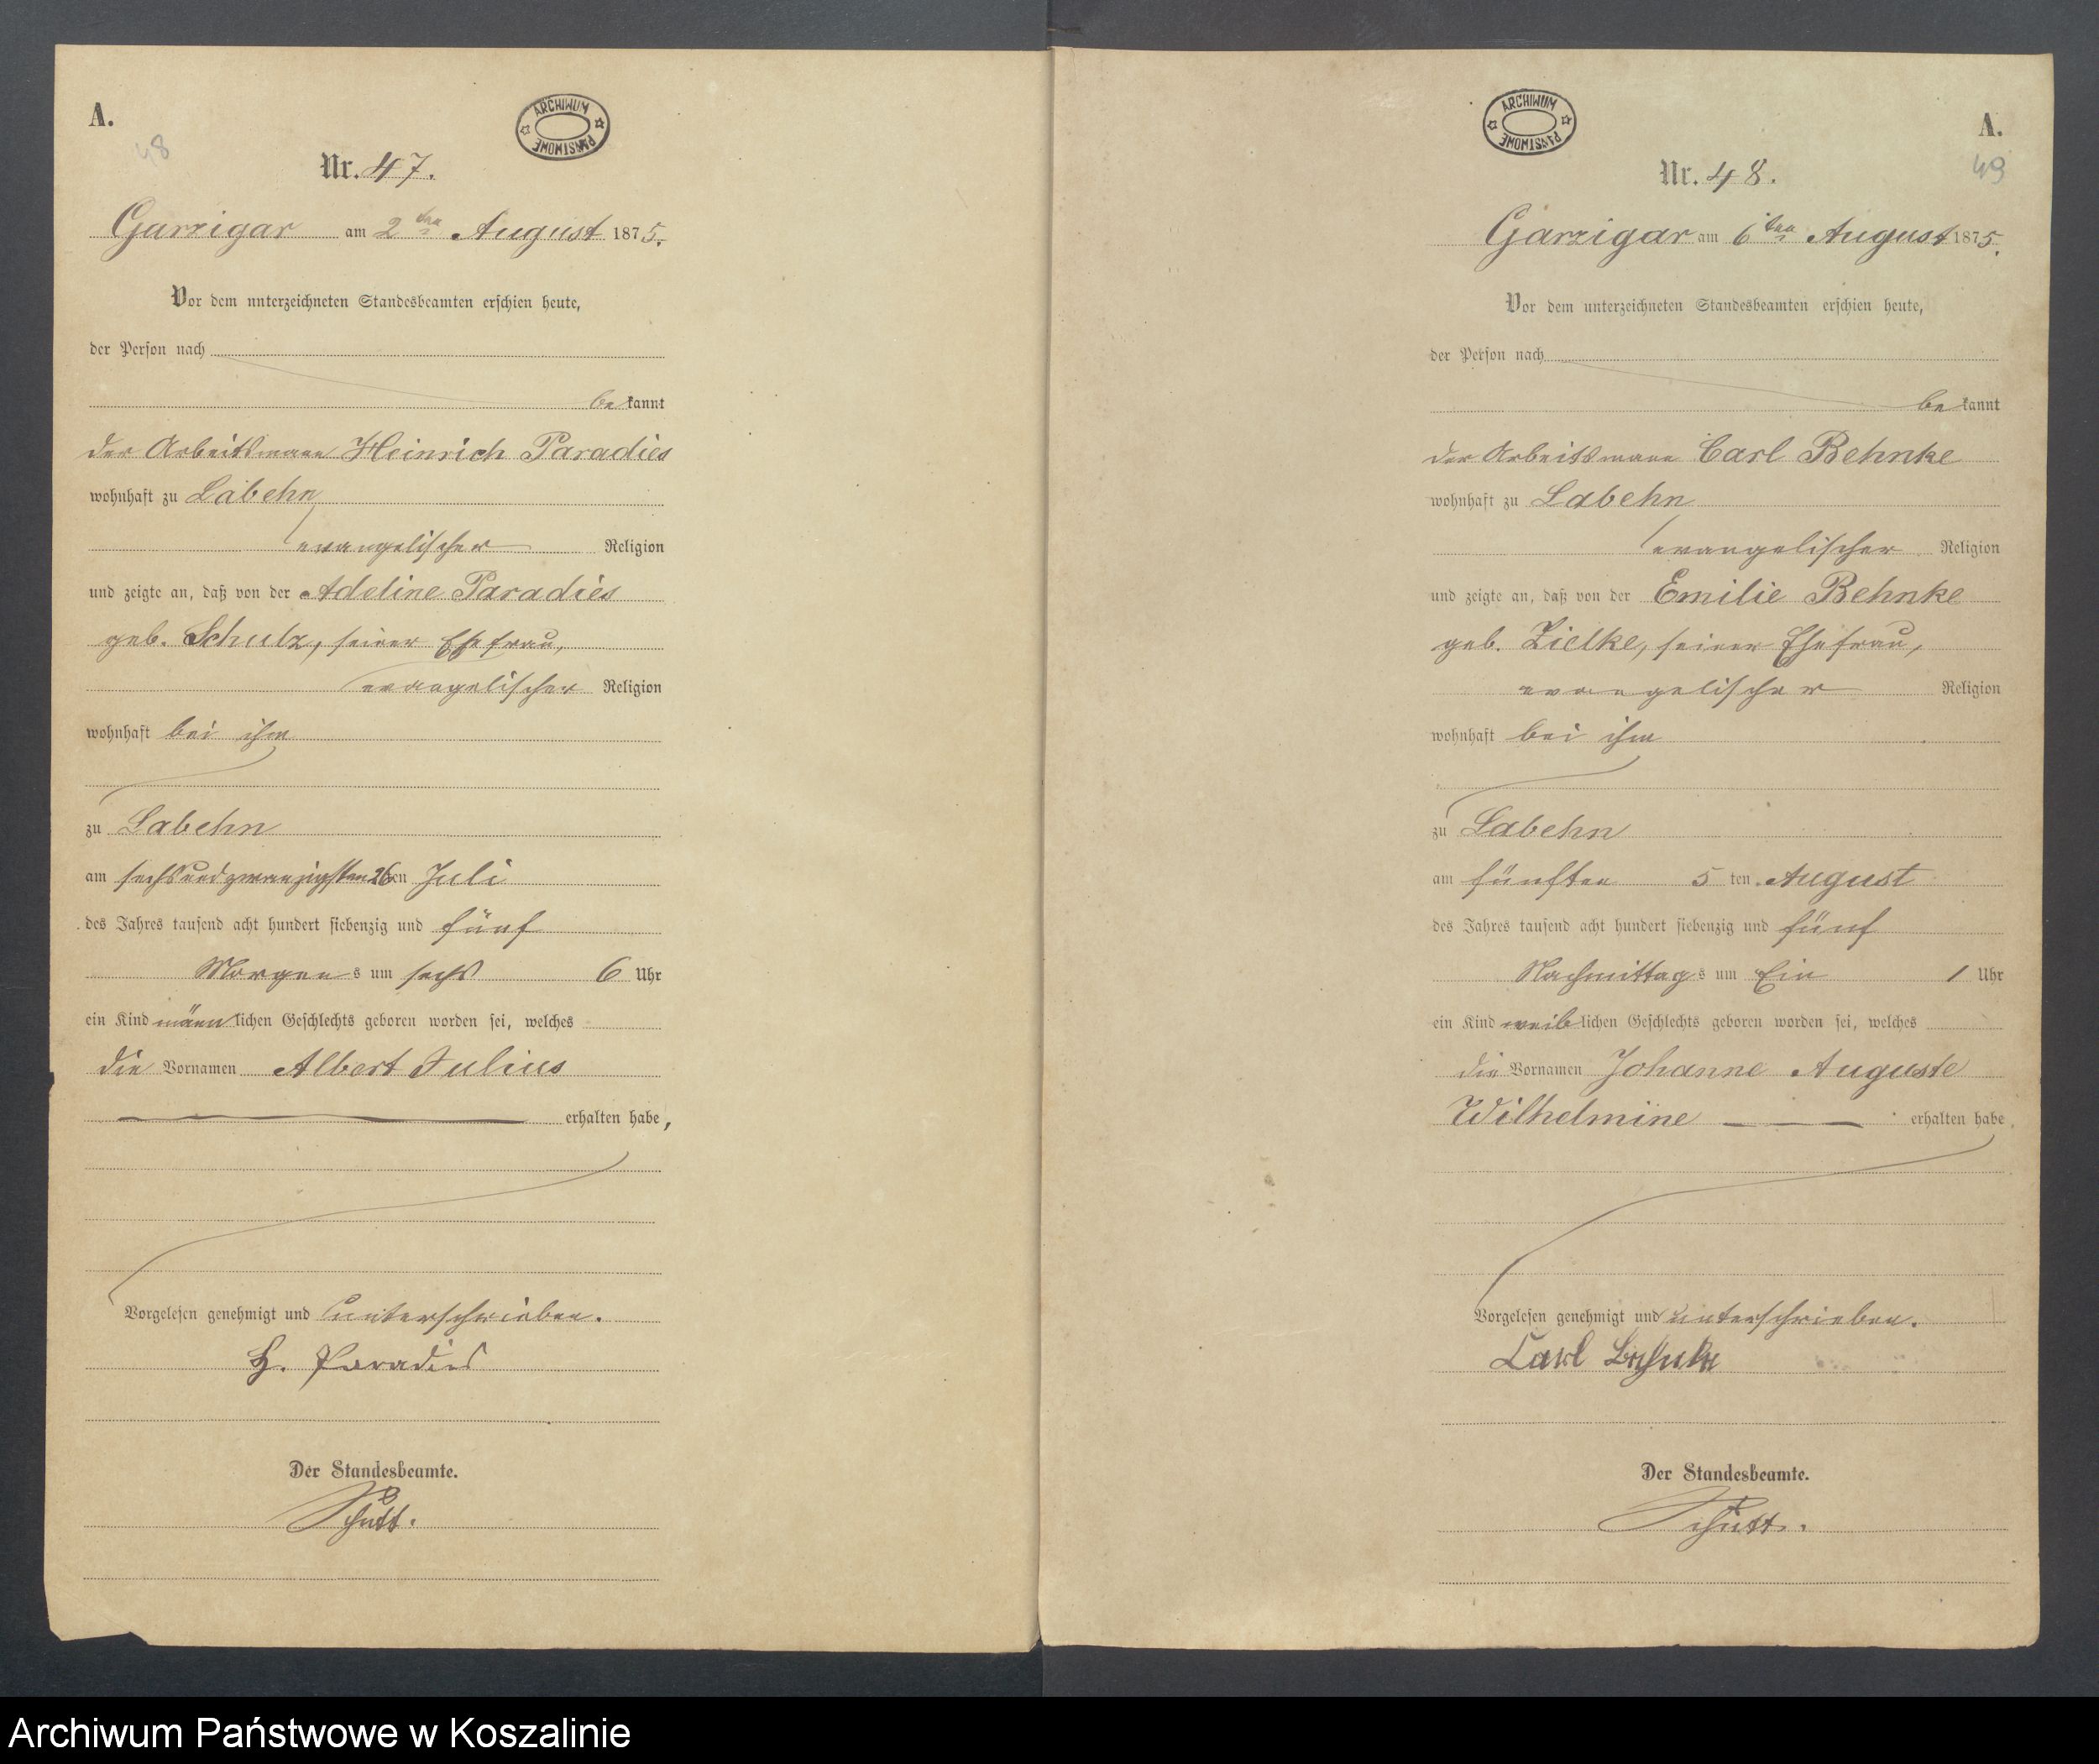 A.
48
ARCHIWUM PAŃSTWOWE
Nr. 47.
Garzigar am 2ten August 1875.
Vor dem unterzeichneten Standesbeamten erschien heute,
der Person nach
bekannt
der Arbeitsmann Heinrich Paradies
wohnhaft zu Labehn
evangelischer Religion
und zeigte an, daß von der Adeline Paradies
geb. Schulz, seiner Ehefrau,
evangelischer Religion
wohnhaft bei ihm
zu Labehn
am sechsundzwanzigsten 26ten Juli
des Jahres tausend acht hundert siebenzig und fünf
Morgens um sechs 6 Uhr
ein Kind männlichen Geschlechts geboren worden sei, welches
die Vornamen Albert Julius
erhalten habe,
Vorgelesen genehmigt und unterschrieben.
H. Paradies
Der Standesbeamte.
Schütt.
ARCHIWUM PAŃSTWOWE
A.
49
Nr. 48.
Garzigar am 6ten August 1875.
Vor dem unterzeichneten Standesbeamten erschien heute,
der Person nach
bekannt
der Arbeitsmann Carl Behnke
wohnhaft zu Labehn
evangelischer Religion
und zeigte an, daß von der Emilie Behnke
geb. Zielke, seiner Ehefrau,
evangelischer Religion
wohnhaft bei ihm
zu Labehn
am fünften 5ten August
des Jahres tausend acht hundert siebenzig und fünf
Nachmittags um Ein 1 Uhr
ein Kind weiblichen Geschlechts geboren worden sei, welches
die Vornamen Johanne Auguste
Wilhelmine erhalten habe.
Vorgelesen genehmigt und unterschrieben.
Carl Behnke
Der Standesbeamte.
Schütt.
Archiwum Państwowe w Koszalinie